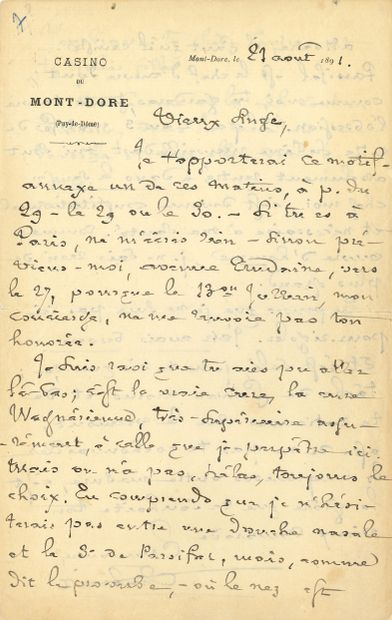 CASINO
DU
MONT-DORE
(Puy-de-Dôme)
Mont-Dore, le 21 août 1891.
Vieux Singe,
Je t'apporterai ce motif-
annexe un de ces matins, à p. du
29 - le 29 ou le 30. - Si tu es à
Paris, ne m'écris rien - Sinon pré-
viens-moi, avenue Trudaine, vers
le 27, pour que le
concierge, ne me renvoie pas ton
honorée.
Je suis ravi que tu aies pu aller
là-bas; c'est la vraie cure, la cure
Wagnérienne, très supérieure assu-
-rément, à celle que je perpètre ici.
Mais on n'a pas, hélas, toujours le
choix. Tu comprends que je n'hési-
terais pas entre une douche nasale
et le 3e de Parsifal, mais, comme
dit le proverbe, - où le nez est